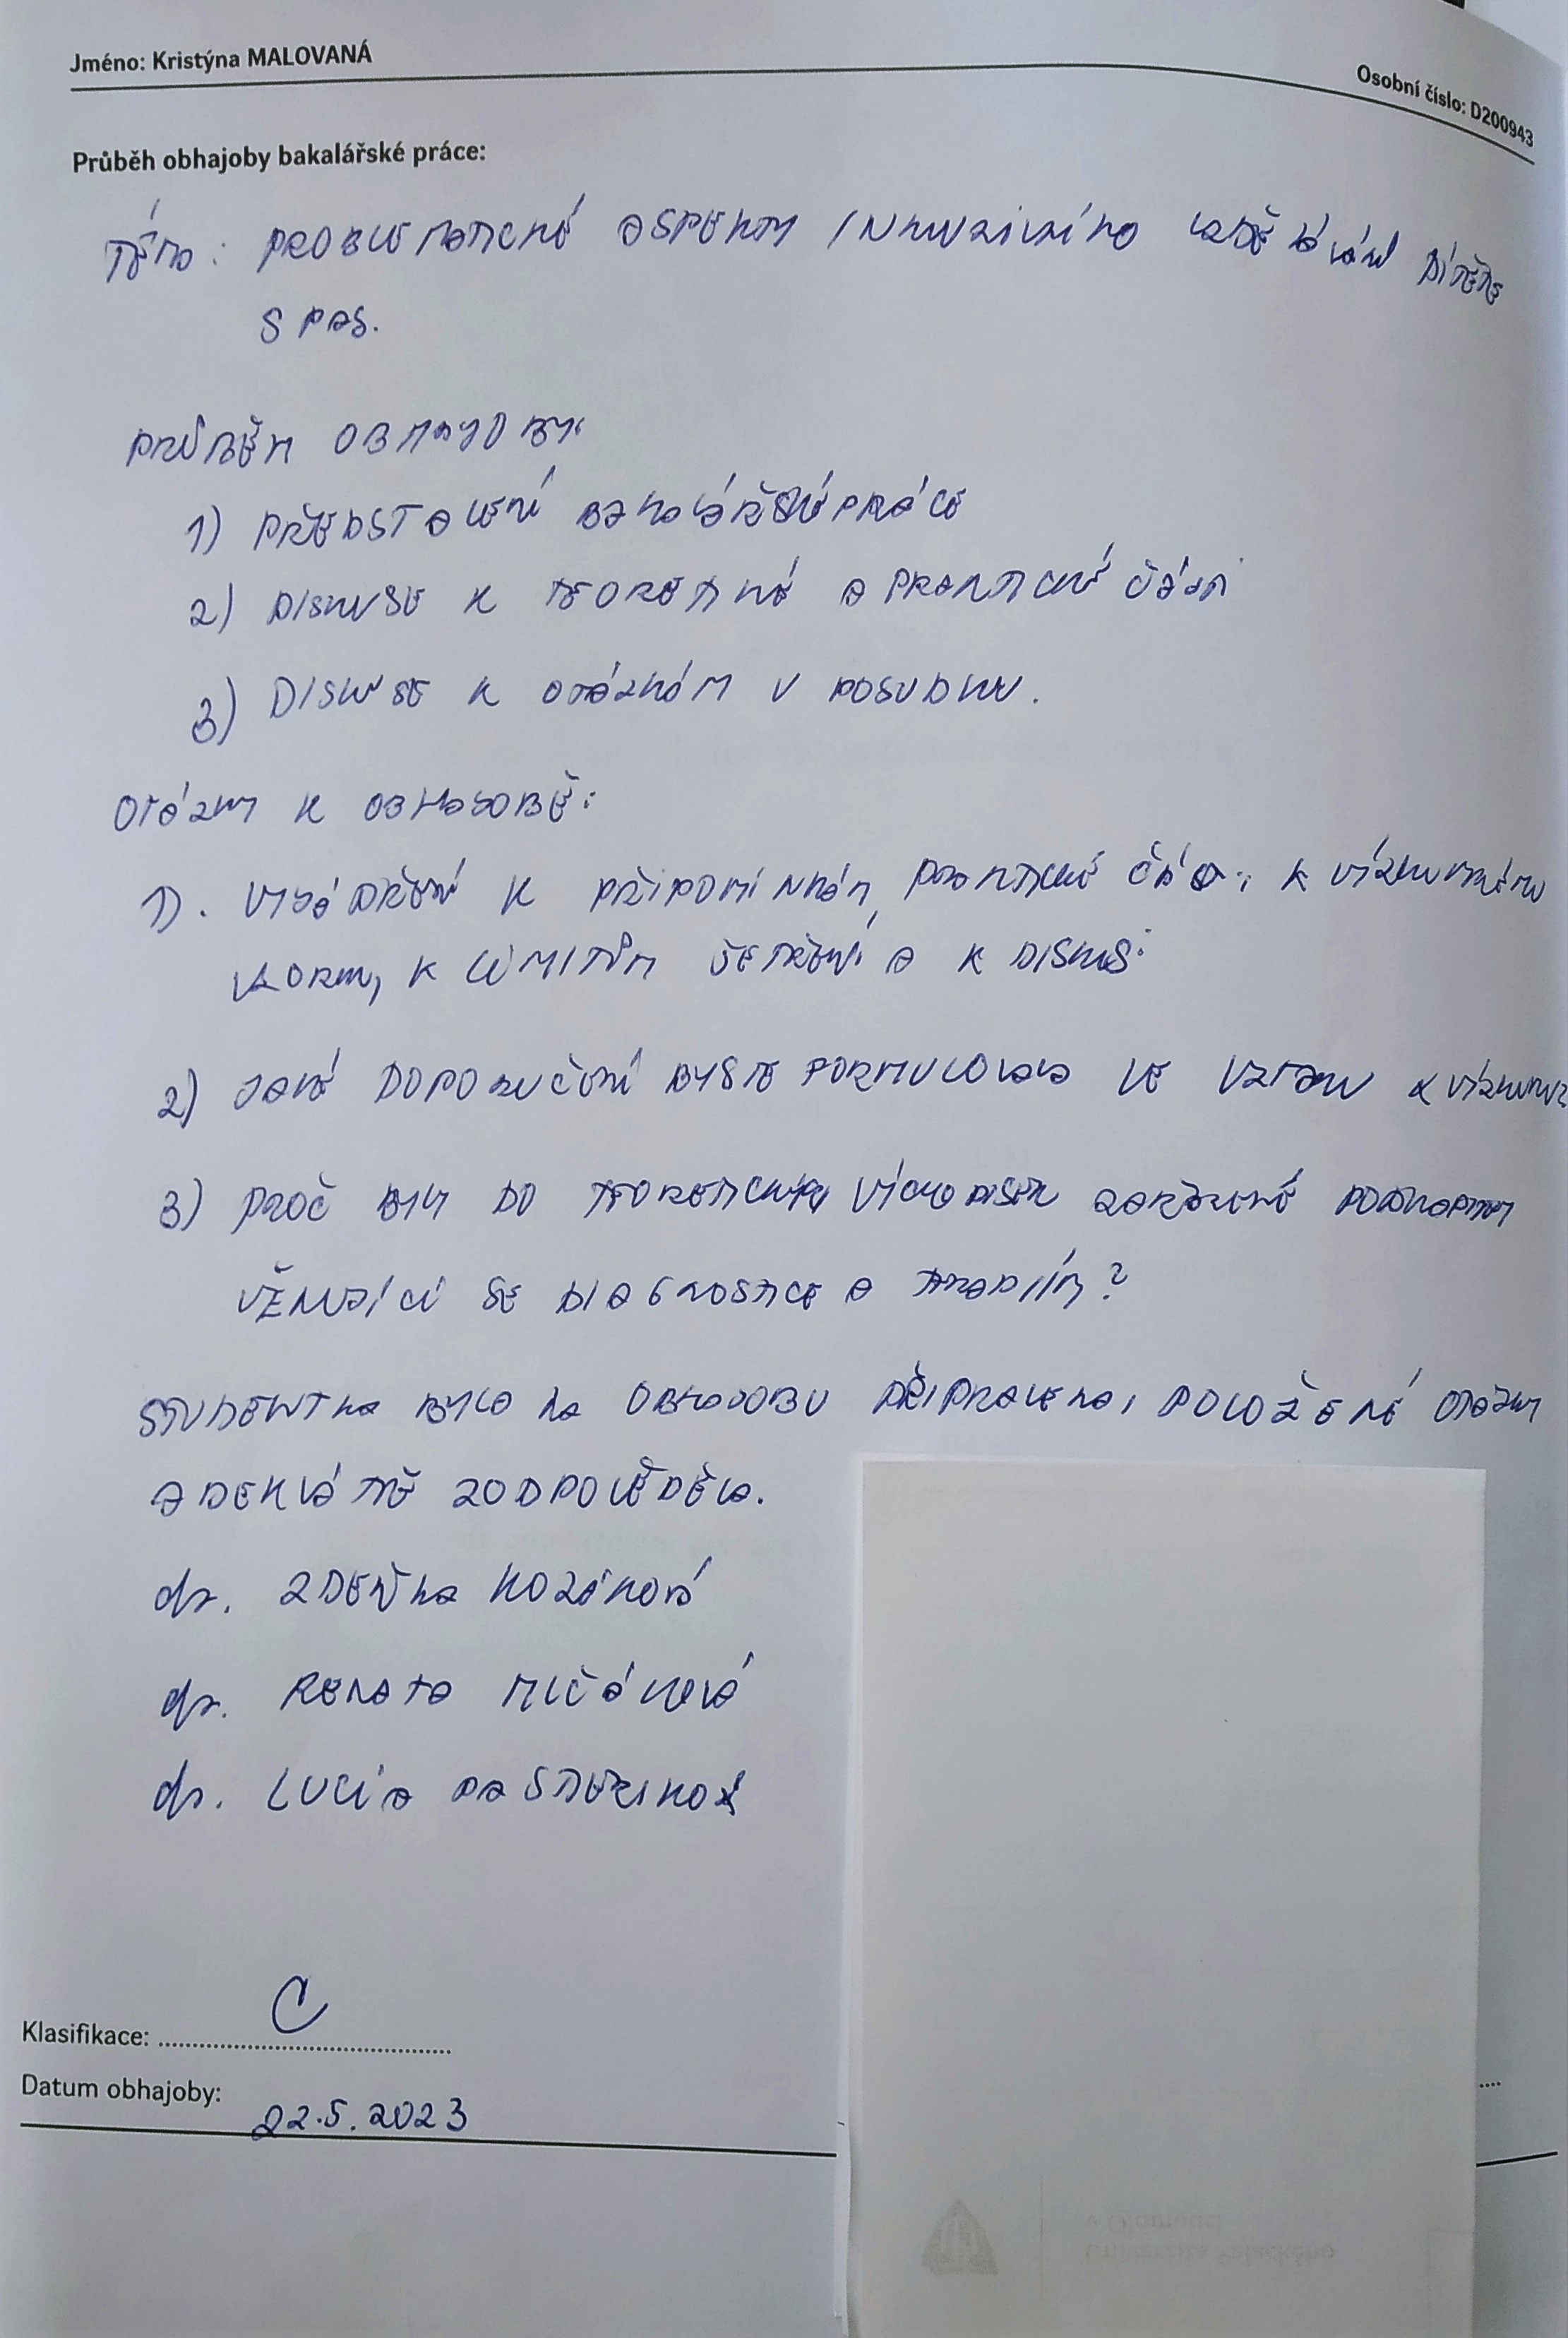 Jméno: Kristýna MALOVANÁ
Osobní číslo: D200943
Průběh obhajoby bakalářské práce:
TÉMA: PROBLEMATICKÉ ASPEKTY INKLUZIVNÍHO VZDĚLÁVÁNÍ DÍTĚTE
S PAS.
PRŮBĚH OBHAJOBY:
1) PŘEDSTAVENÍ BAKALÁŘSKÉ PRÁCE
2) DISKUSE K TEORETICKÉ A PRAKTICKÉ ČÁSTI
3) DISKUSE K OTÁZKÁM V POSUDKU.
OTÁZKY K OBHAJOBĚ:
1). VYJÁDŘENÍ K PŘIPOMÍNKÁM PRAKTICKÉ ČÁSTI: K VÝZKUMNÉMU
VZORKU, K LIMITŮM ŠETŘENÍ A K DISKUSI
2) JAKÁ DOPORUČENÍ BYSTE FORMULOVALA VE VZTAHU K VÝZKUMU?
3) PROČ BYLY DO TEORETICKÝCH VÝCHODISEK ZAŘAZENÉ PODKAPITOLY
VĚNUJÍCÍ SE DIAGNOSTICE A TERAPIÍM?
STUDENTKA BYLA NA OBHAJOBU PŘIPRAVENA, POLOŽENÉ OTÁZKY
ADEKVÁTNĚ ZODPOVĚDĚLA.
dr. ZDEŇKA KOZÁKOVÁ
dr. RENATA MLČÁKOVÁ
dr. LUCIA PASTIERIKOVÁ
Klasifikace: C
Datum obhajoby: 22.5.2023
v Olomouci
Univerzita Palackého